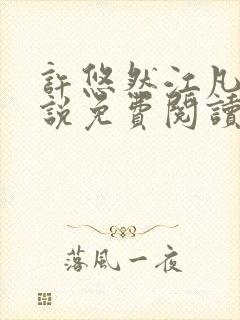 許悠然江凡
說免費閱讀
落風一夜